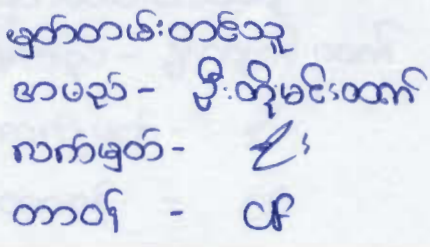 မှတ်တမ်းတင်သူ
အမည် - ဦးတိုးမင်းထက်
လက်မှတ် -
တာဝန် - CF